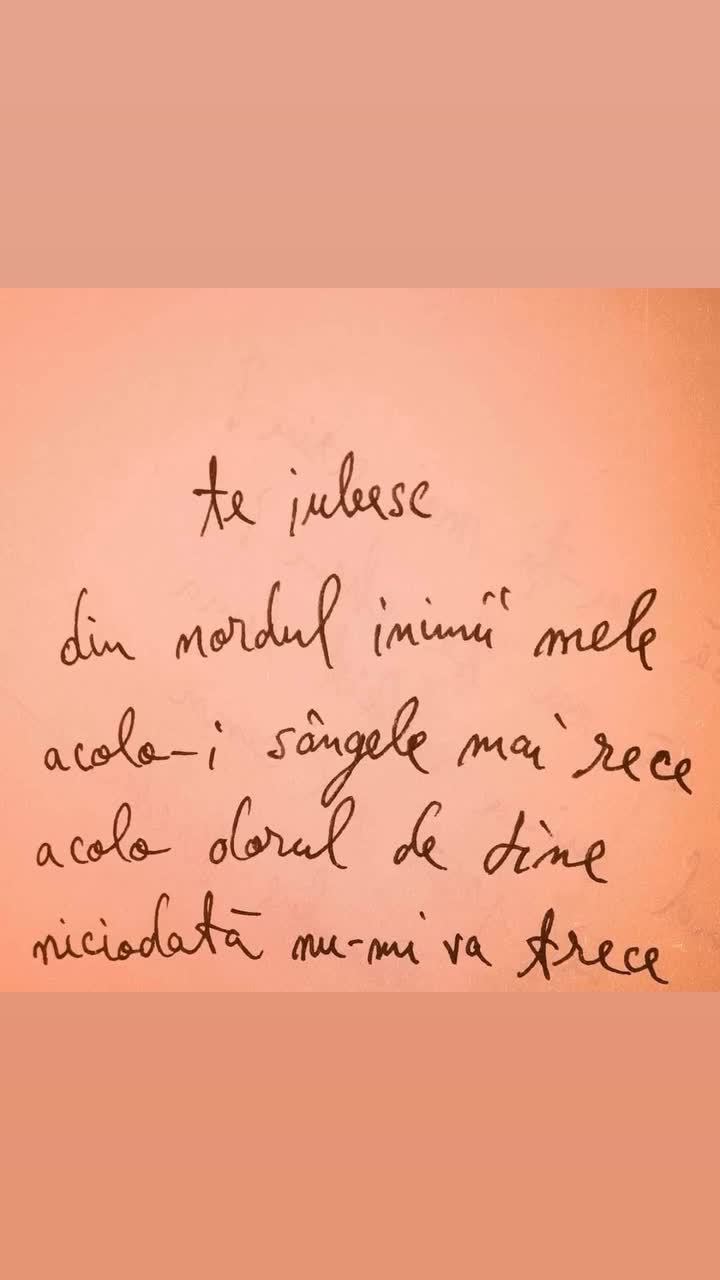 te iubesc
din nordul inimii mele
acolo-i sângele mai rece
acolo dorul de tine
niciodată nu-mi va trece